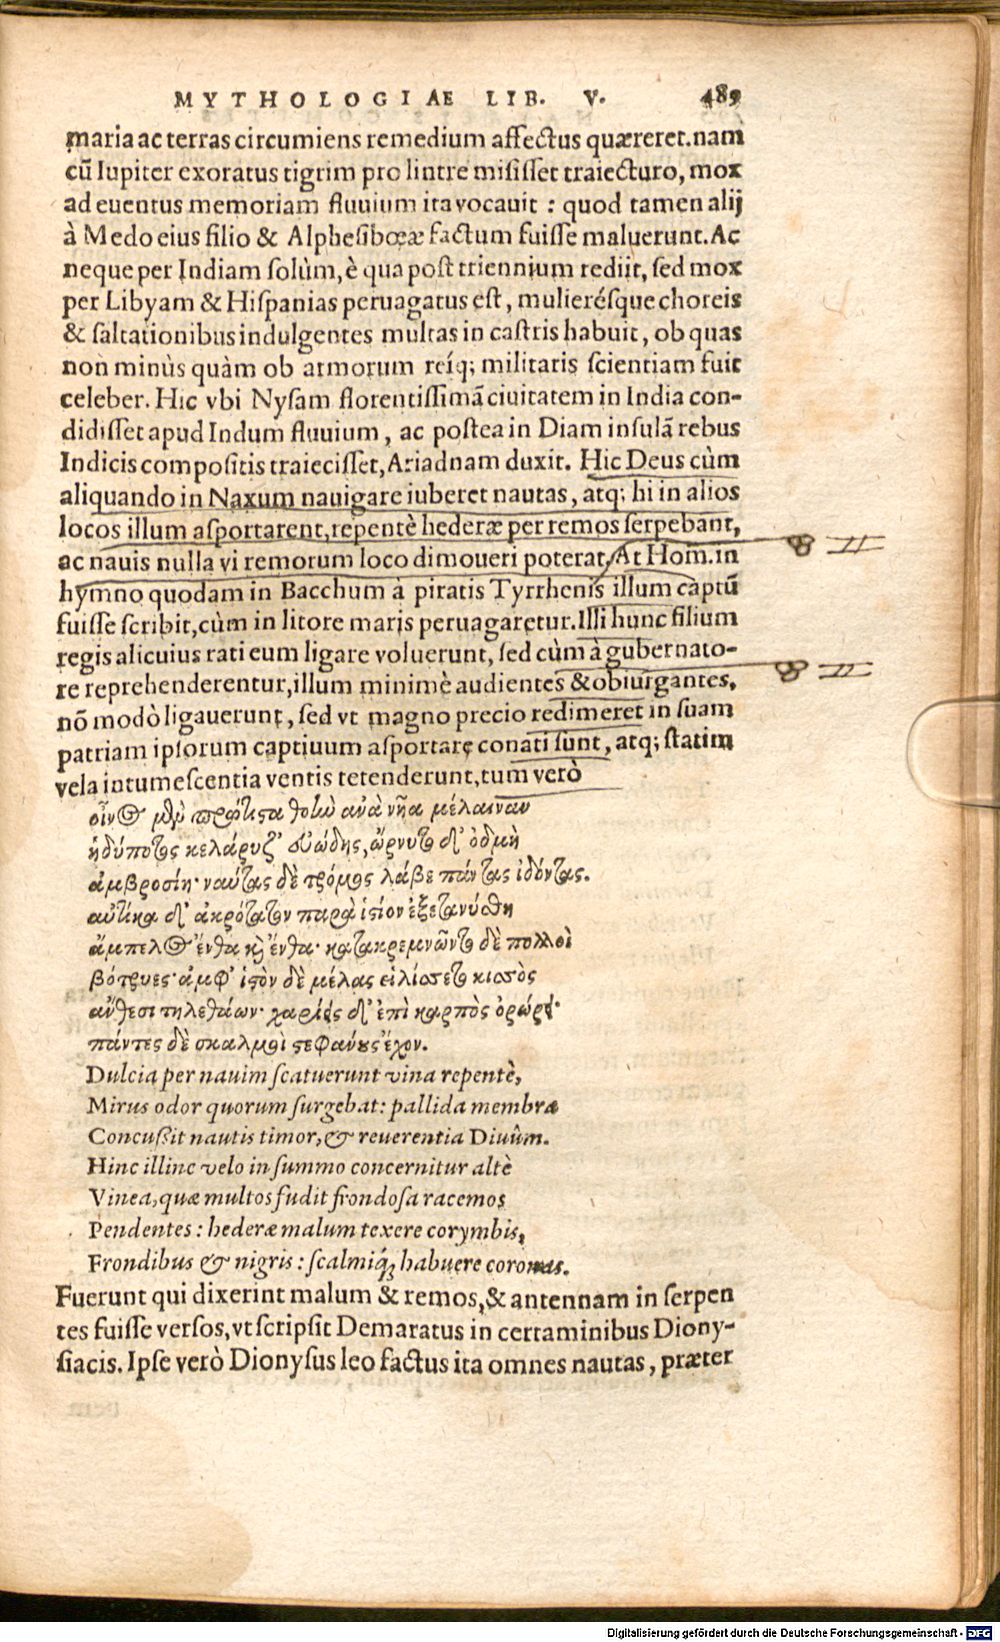 MYTHOLOGIAE LIB. V. 489
maria ac terras circumiens remedium affectus quæreret. nam
cũ Iupiter exoratus tigrim pro lintre misisset traiecturo, mox
ad euentus memoriam fluuium ita vocauit : quod tamen alij
à Medo eius filio & Alphesibœæ factum fuisse maluerunt. Ac
neque per Indiam solùm, è qua post triennium rediit, sed mox
per Libyam & Hispanias peruagatus est, mulierésque choreis
& saltationibus indulgentes multas in castris habuit, ob quas
non minùs quàm ob armorum reíq; militaris scientiam fuit
celeber. Hic vbi Nysam florentissimã ciuitatem in India con-
didisset apud Indum fluuium, ac postea in Diam insulã rebus
Indicis compositis traiecisset, Ariadnam duxit. Hic Deus cùm
aliquando in Naxum nauigare iuberet nautas, atq; hi in alios
locos illum asportarent, repentè hederæ per remos serpebant,
ac nauis nulla vi remorum loco dimoueri poterat, At Hom. in
hymno quodam in Bacchum à piratis Tyrrhenis illum captũ
fuisse scribit, cùm in litore maris peruagaretur. Illi hunc filium
regis alicuius rati eum ligare voluerunt, sed cùm à gubernato-
re reprehenderentur, illum minimè audientes & obiurgantes,
nõ modò ligauerunt, sed vt magno precio redimeret in suam
patriam ipsorum captiuum asportare conati sunt, atq; statim
vela intumescentia ventis tetenderunt, tum verò
οἶνος μὲν πρώτιστα θοὴν ἀνὰ νῆα μέλαιναν
ἡδύποτος κελάρυζ' εὐώδης, ὤρνυτο δ' ὀδμὴ
ἀμβροσίη· ναύτας δὲ τρόμος λάβε πάντας ἰδόντας.
αὐτίκα δ' ἀκρότατον παρὰ ἱστίον ἐξετανύσθη
ἄμπελος ἔνθα καὶ ἔνθα· κατακρεμνῶντο δὲ πολλοὶ
βότρυες· ἀμφ' ἱστὸν δὲ μέλας εἱλίσσετο κισσὸς
ἄνθεσι τηλεθάων· χαρίεις δ' ἐπὶ καρπὸς ὀρώρει·
πάντες δὲ σκαλμοὶ στεφάνους ἔχον.
Dulcia per nauim scatuerunt vina repentè,
Mirus odor quorum surgebat: pallida membra
Concußit nautis timor, & reuerentia Diuûm.
Hinc illinc velo in summo concernitur altè
Vinea, quæ multos fudit frondosa racemos
Pendentes: hederæ malum texere corymbis,
Frondibus & nigris: scalmiq́; habuere coronas.
Fuerunt qui dixerint malum & remos, & antennam in serpen
tes fuisse versos, vt scripsit Demaratus in certaminibus Diony-
siacis. Ipse verò Dionysus leo factus ita omnes nautas, præter
Digitalisierung gefördert durch die Deutsche Forschungsgemeinschaft - DFG